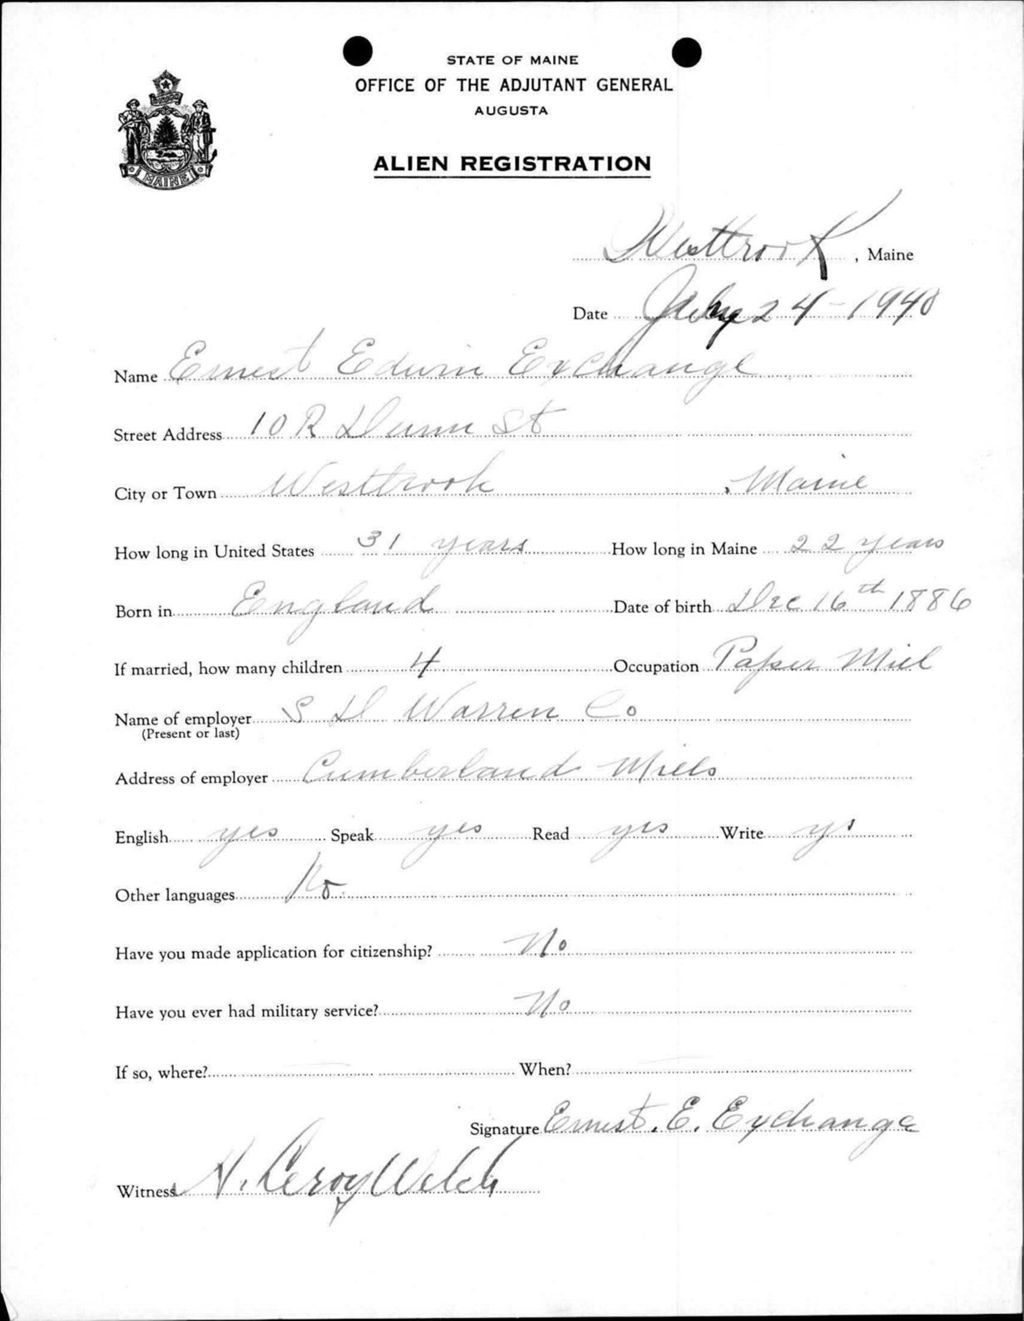 STATE OF MAINE
OFFICE OF THE ADJUTANT GENERAL
AUGUSTA
ALIEN REGISTRATION
MAINE
Westbrook, Maine
Date July 24-1940
Name Ernest Edwin Exchange
Street Address 10 R Dunn St
City or Town Westbrook, Maine
How long in United States 31 years How long in Maine 22 years
Born in England Date of birth Dec 16th 1886
If married, how many children 4 Occupation Paper Mill
Name of employer S D Warren Co
(Present or last)
Address of employer Cumberland Mills
English yes Speak yes Read yes Write ys
Other languages No
Have you made application for citizenship? No
Have you ever had military service? No
If so, where? When?
Signature Ernest. E. Exchange
Witness H. Leroy Welch